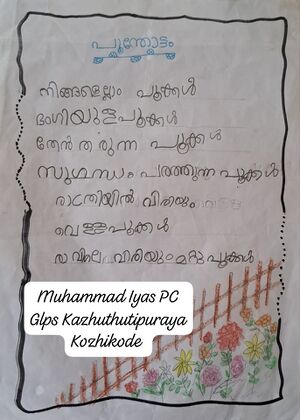 പൂന്തോട്ടം
നിങ്ങളെല്ലാം പൂക്കൾ
ഭംഗിയുള്ളപൂക്കൾ
തേൻ തരുന്ന പൂക്കൾ
സുഗന്ധം പരത്തുന്ന പൂക്കൾ
രാത്രിയിൽ വിരിയും
വെള്ളപൂക്കൾ
വിരിയും മറ്റുപൂക്കൾ
Muhammad Iyas PC
Glps Kazhuthutipuraya
Kozhikode